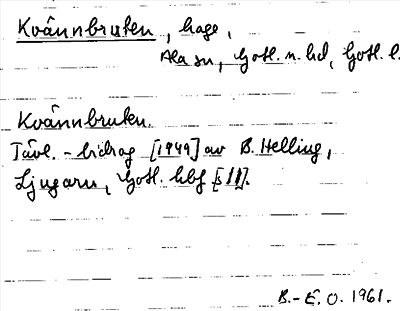 Kvännbruten, hage,
Ala sn, Gotl. n. hd, Gotl. l.
Kvännbruten.
Tävl.-bidrag [1949] av B. Helling,
Ljugarn, Gotl. hbf [s 11].
B.-E. O. 1961.